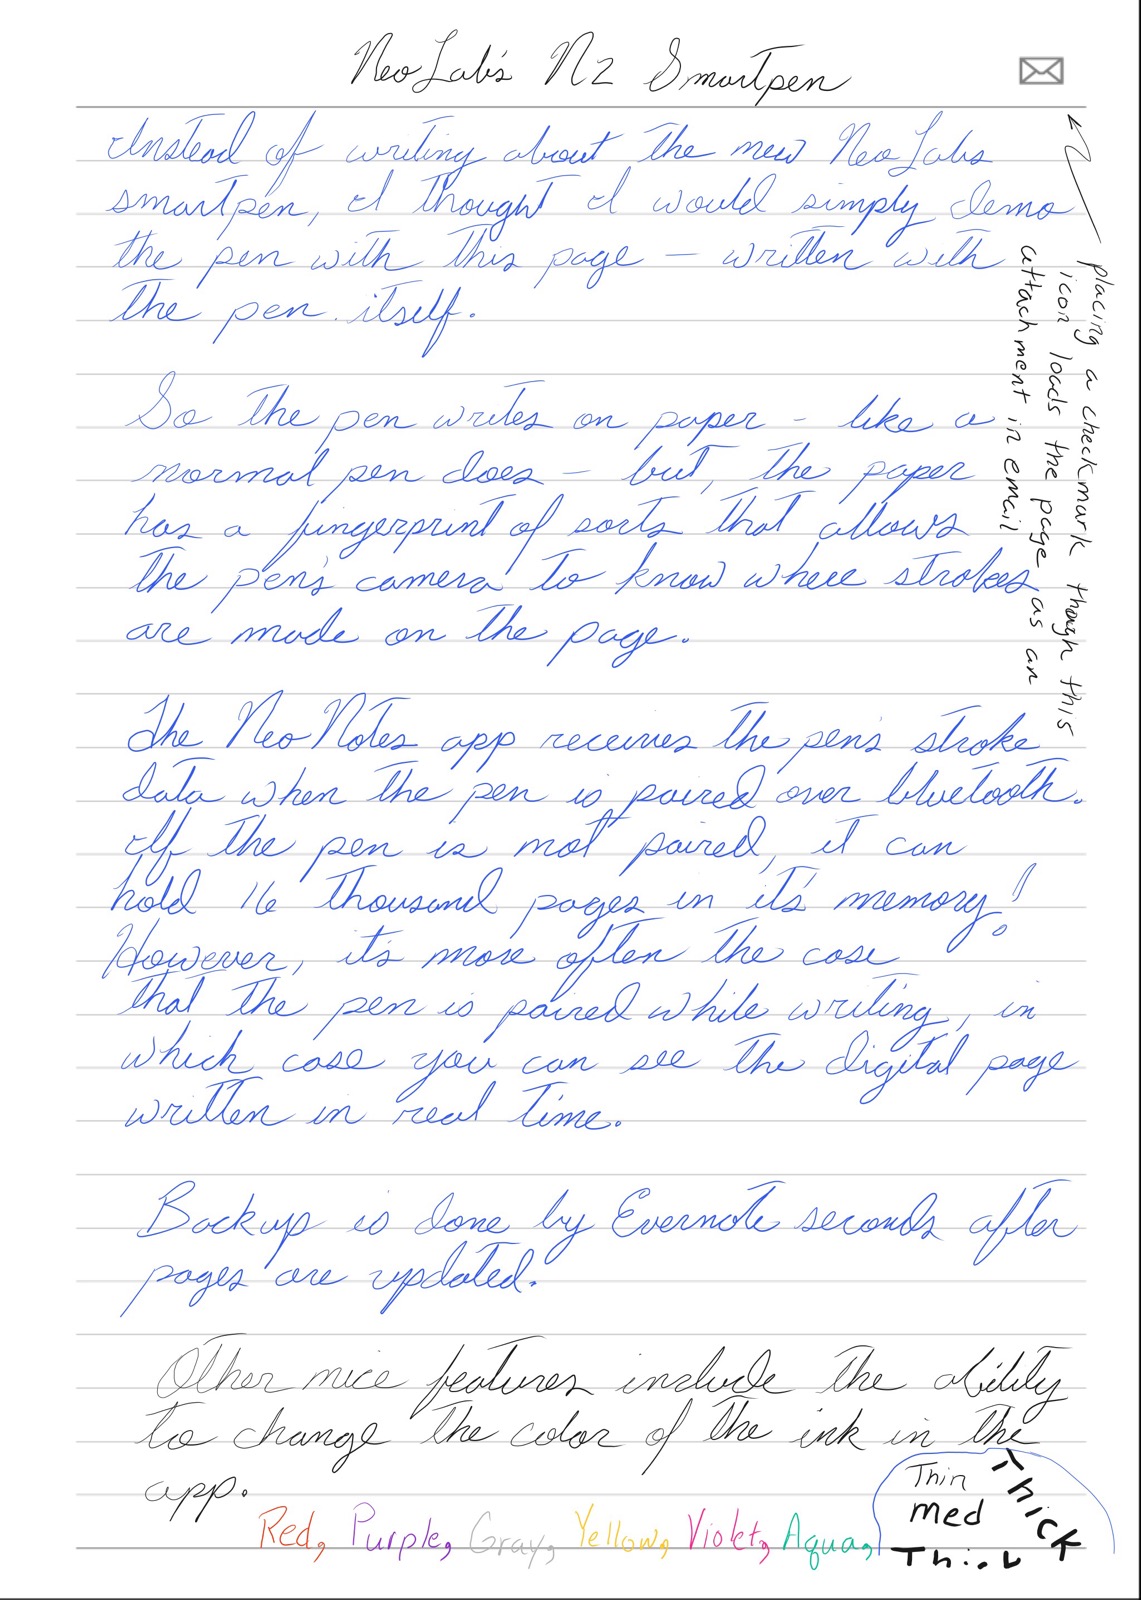 NeoLab's N2 Smartpen
Instead of writing about the new NeoLabs
smartpen, I thought I would simply demo
the pen with this page - written with
the pen itself.
So the pen writes on paper - like a
normal pen does - but, the paper
has a fingerprint of sorts that allows
the pen's camera to know where strokes
are made on the page.
The NeoNotes app receives the pen's stroke
data when the pen is paired over bluetooth.
If the pen is not paired, it can
hold 16 thousand pages in it's memory!
However, it's more often the case
that the pen is paired while writing, in
which case you can see the digital page
written in real time.
Backup is done by Evernote seconds after
pages are updated.
Other nice features include the ability
to change the color of the ink in the
app.
Red, Purple, Gray, Yellow, Violet, Aqua,
Thin
med
Thick
Thick
placing a checkmark though this
icon loads the page as an
attachment in email